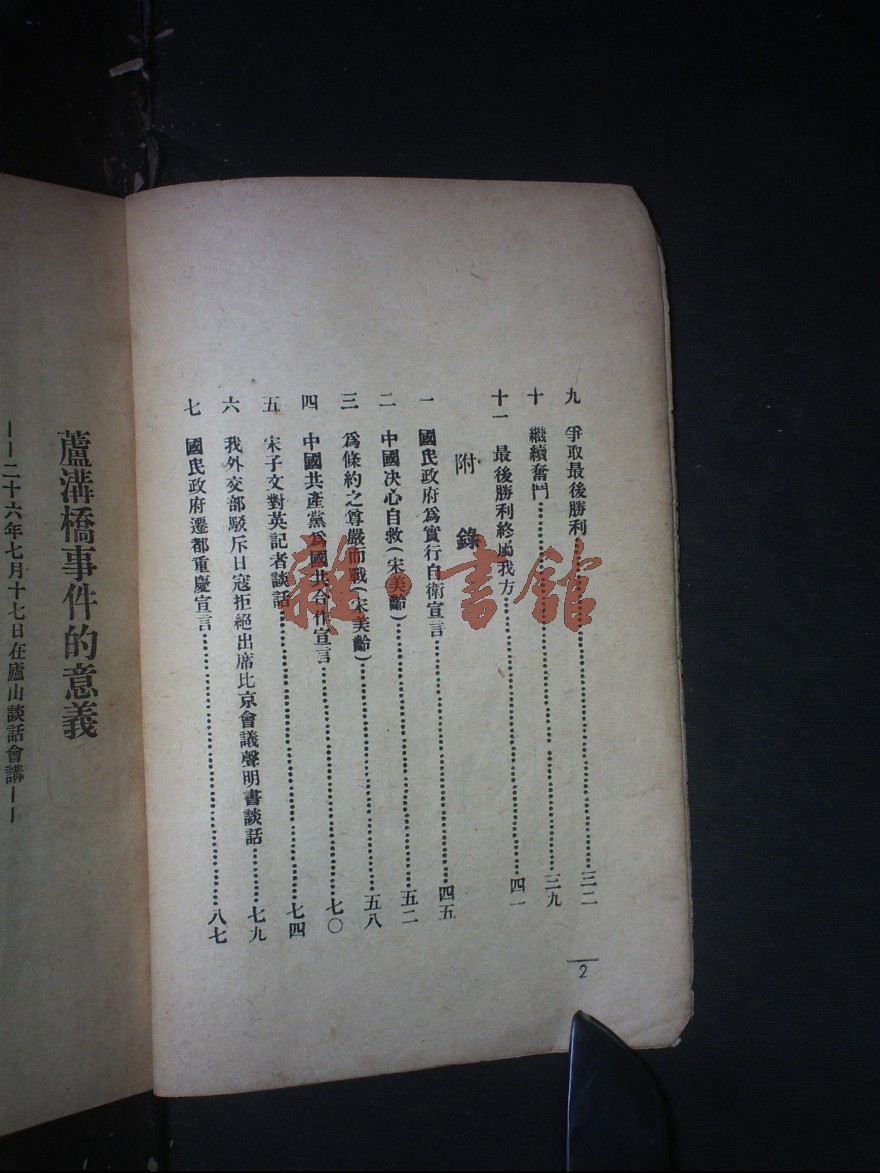 九　爭取最後勝利…………三二
十　繼續奮鬥…………三九
十一　最後勝利終屬我方…………四一
附　錄
一　國民政府爲實行自衛宣言…………四五
二　中國決心自救(宋美齡)…………五二
三　爲條約之尊嚴而戰(宋美齡)…………五八
四　中國共產黨爲國共合作宣言…………七〇
五　宋子文對英記者談話…………七四
六　我外交部駁斥日寇拒絕出席比京會議聲明書談話…………七九
七　國民政府遷都重慶宣言…………八七
2
蘆溝橋事件的意義
——二十六年七月十七日在廬山談話會講——
雜·書館